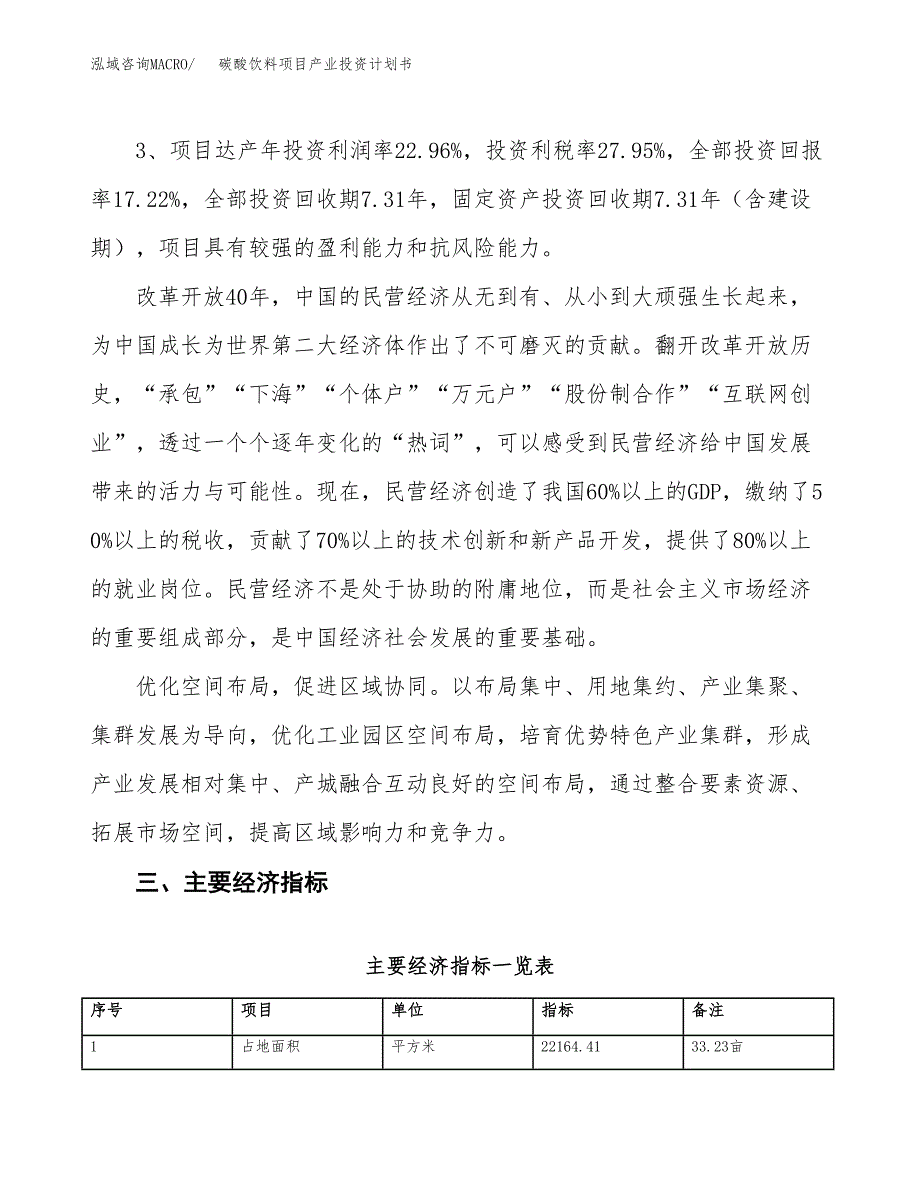 泓域咨询MACRO/ 碳酸饮料项目产业投资计划书
3、项目达产年投资利润率22.96%，投资利税率27.95%，全部投资回报
率17.22%，全部投资回收期7.31年，固定资产投资回收期7.31年（含建设
期），项目具有较强的盈利能力和抗风险能力。
改革开放40年，中国的民营经济从无到有、从小到大顽强生长起来，
为中国成长为世界第二大经济体作出了不可磨灭的贡献。翻开改革开放历
史，“承包”“下海”“个体户”“万元户”“股份制合作”“互联网创
业”，透过一个个逐年变化的“热词”，可以感受到民营经济给中国发展
带来的活力与可能性。现在，民营经济创造了我国60%以上的GDP，缴纳了5
0%以上的税收，贡献了70%以上的技术创新和新产品开发，提供了80%以上
的就业岗位。民营经济不是处于协助的附庸地位，而是社会主义市场经济
的重要组成部分，是中国经济社会发展的重要基础。
优化空间布局，促进区域协同。以布局集中、用地集约、产业集聚、
集群发展为导向，优化工业园区空间布局，培育优势特色产业集群，形成
产业发展相对集中、产城融合互动良好的空间布局，通过整合要素资源、
拓展市场空间，提高区域影响力和竞争力。
三、主要经济指标
主要经济指标一览表
序号 项目 单位 指标 备注
1 占地面积 平方米 22164.41 33.23亩